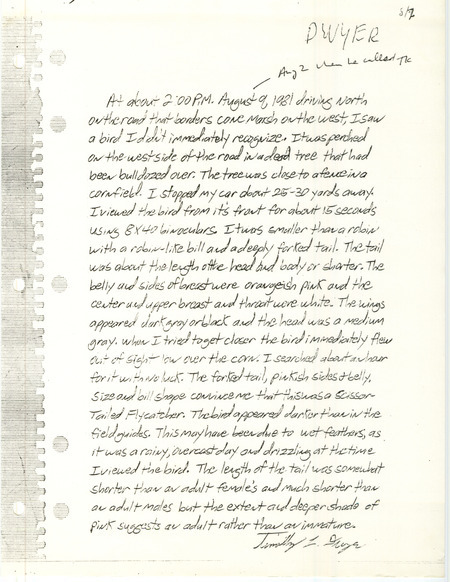 8/9
DWYER
Aug 2 when he called TK
At about 2:00 P.M. August 9, 1981 driving North
on the road that borders Cone Marsh on the west, I saw
a bird I didn't immediately recognize. It was perched
on the west side of the road in a dead tree that had
been bulldozed over. The tree was close to a fence in a
cornfield. I stopped my car about 25-30 yards away.
I viewed the bird from it's front for about 15 seconds
using 8X40 binoculars. It was smaller than a robin
with a robin-like bill and a deeply forked tail. The tail
was about the length of the head and body or shorter. The
belly and sides of breast were orangeish pink and the
center and upper breast and throat were white. The wings
appeared dark gray or black and the head was a medium
gray. When I tried to get closer the bird immediately flew
out of sight low over the corn. I searched about an hour
for it with no luck. The forked tail, pinkish sides & belly,
size and bill shape convince me that this was a Scissor
Tailed Flycatcher. The bird appeared darker than in the
field guides. This may have been due to wet feathers, as
it was a rainy, overcast day and drizzling at the time
I viewed the bird. The length of the tail was somewhat
shorter than an adult female's and much shorter than
an adult males but the extent and deeper shade of
pink suggests an adult rather than an immature.
Timothy L. Dwyer